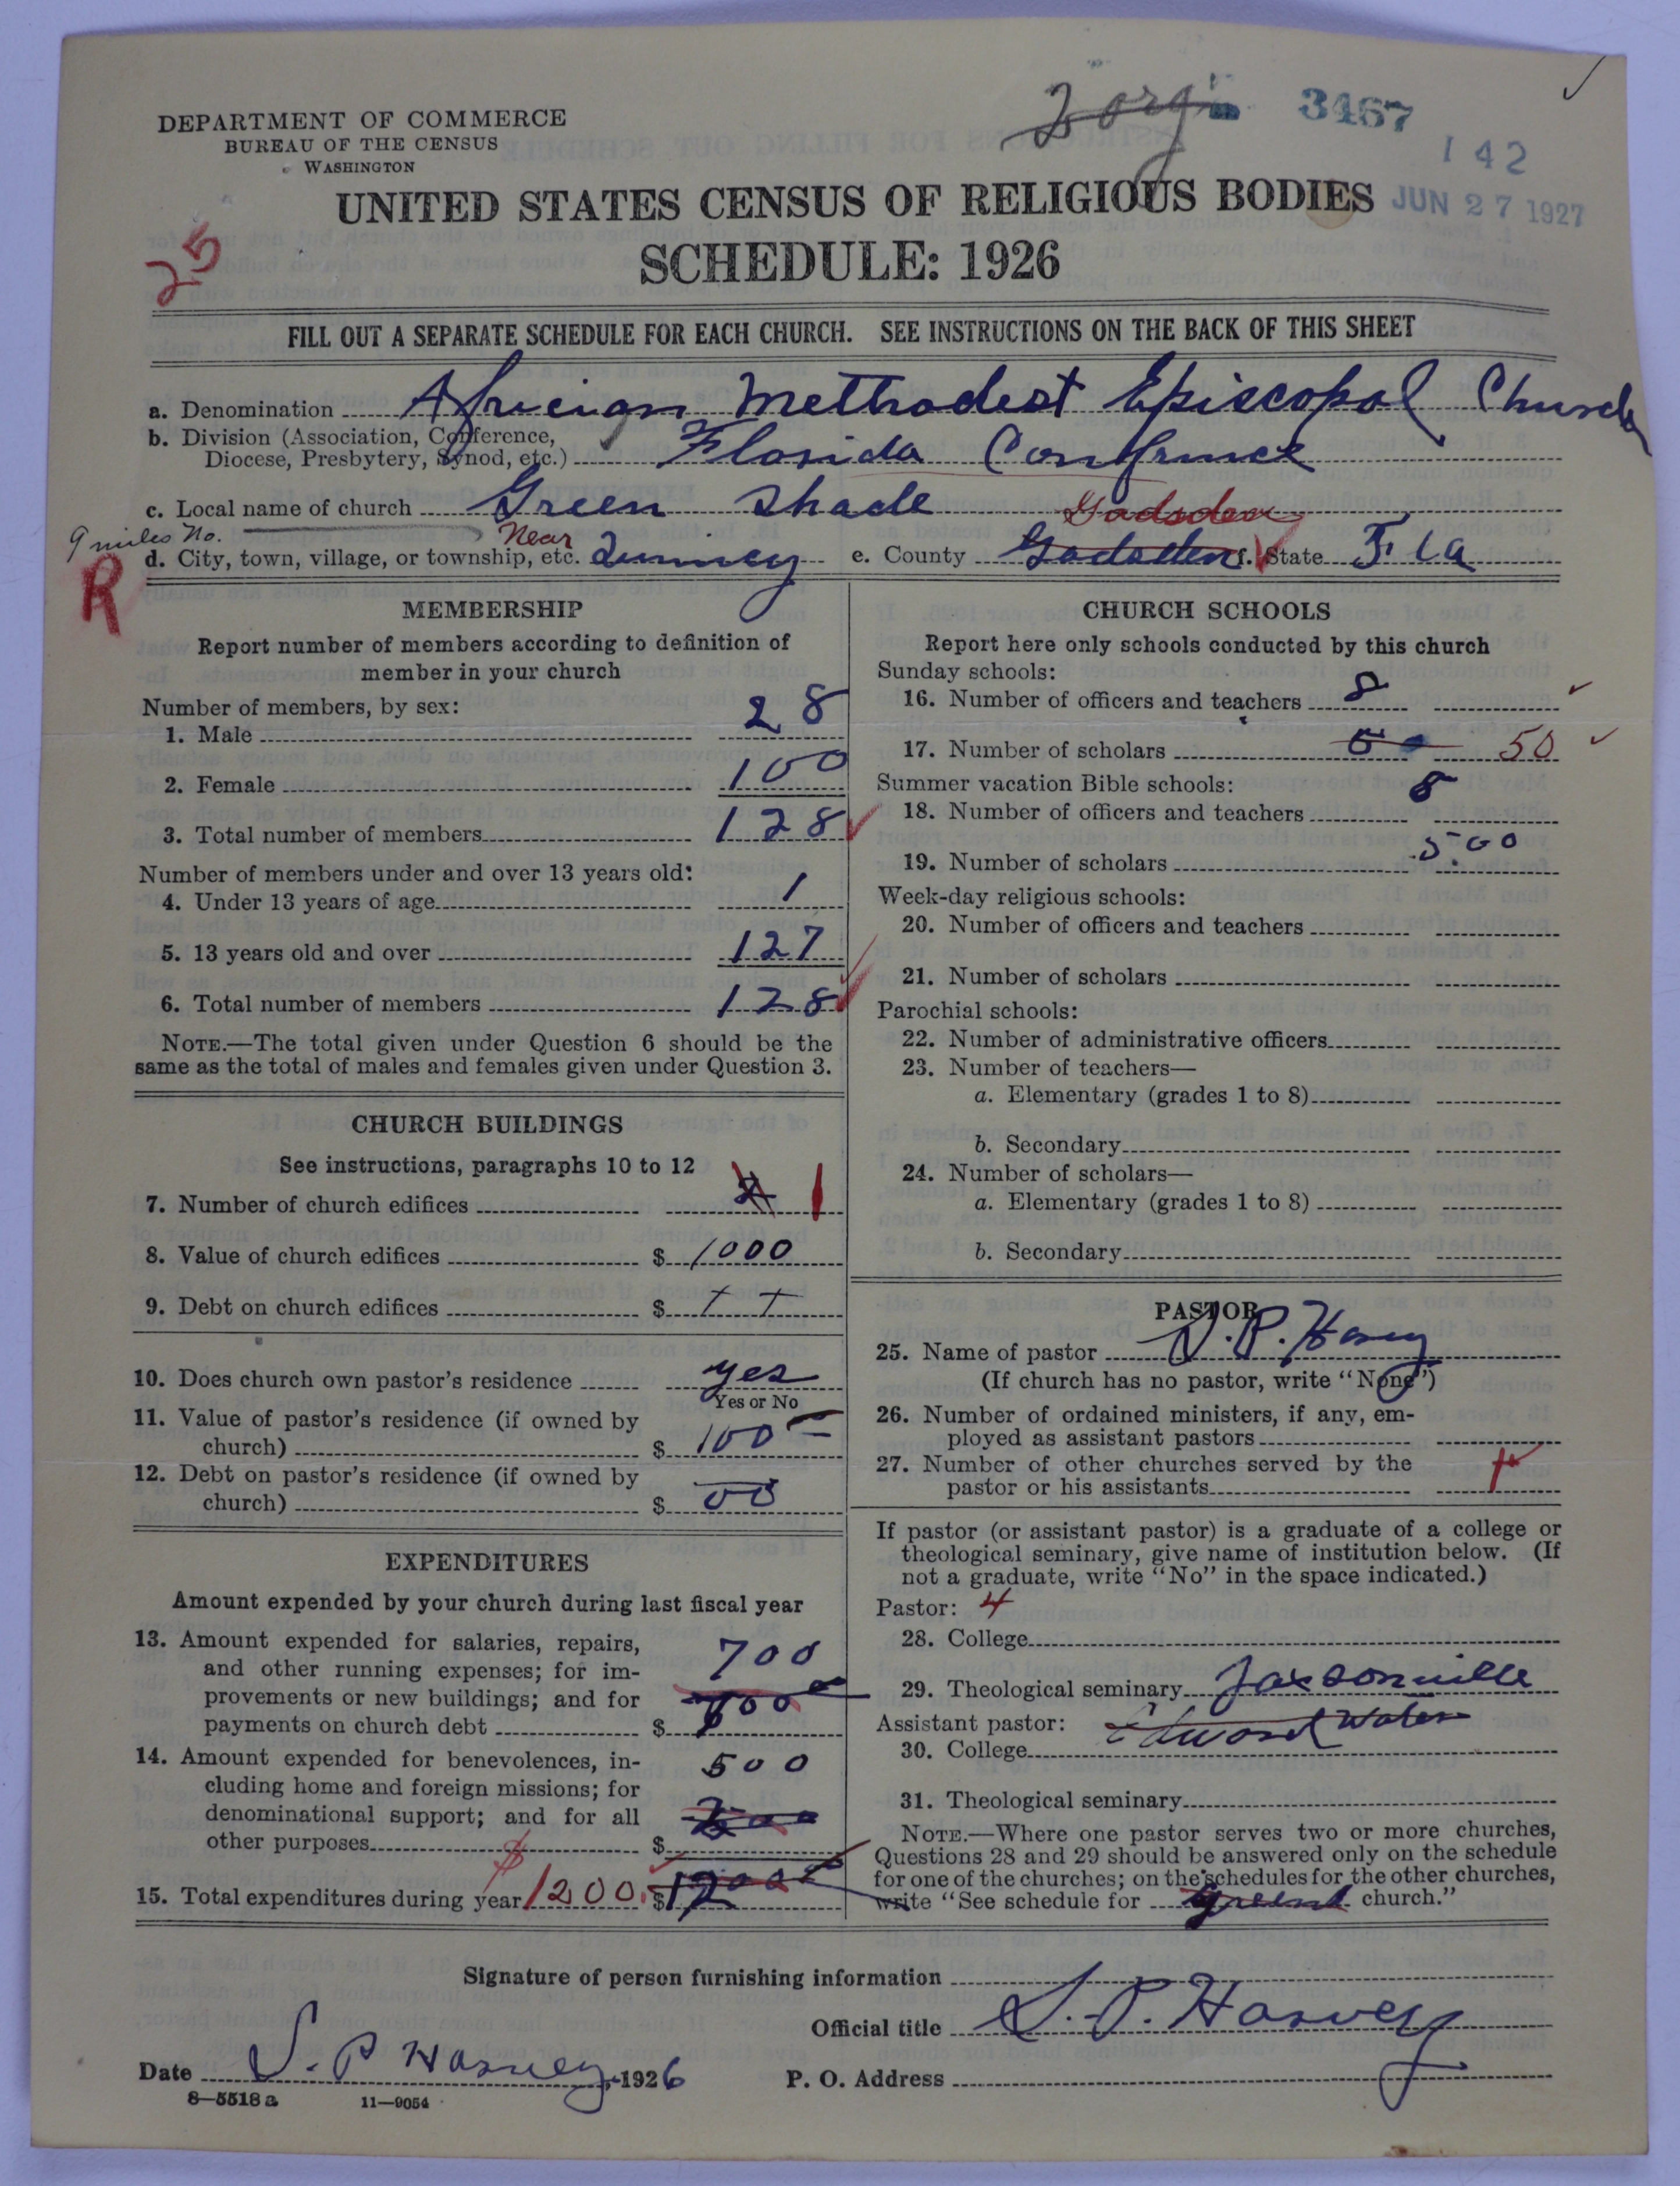 3467
142
JUN 27 1927
DEPARTMENT OF COMMERCE
BUREAU OF THE CENSUS
WASHINGTON
UNITED STATES CENSUS OF RELIGIOUS BODIES
SCHEDULE: 1926
25
FILL OUT A SEPARATE SCHEDULE FOR EACH CHURCH. SEE INSTRUCTIONS ON THE BACK OF THIS SHEET
a. Denomination Africian Methodist Episcopal Church
b. Division (Association, Conference,
Diocese, Presbytery, Synod, etc.) Florida Confrence
c. Local name of church Green Shade
9 miles No. Near Gadsden
d. City, town, village, or township, etc. e. County Gadsden f. State Fla
R
MEMBERSHIP
Report number of members according to definition of
member in your church
Number of members, by sex:
1. Male 28
2. Female 100
3. Total number of members 128
Number of members under and over 13 years old:
4. Under 13 years of age 1
5. 13 years old and over 127
6. Total number of members 128
NOTE.—The total given under Question 6 should be the
same as the total of males and females given under Question 3.
CHURCH BUILDINGS
See instructions, paragraphs 10 to 12
7. Number of church edifices 1
8. Value of church edifices $ 1000
9. Debt on church edifices $
10. Does church own pastor's residence yes
Yes or No
11. Value of pastor's residence (if owned by
church) $ 100
12. Debt on pastor's residence (if owned by
church) $ 00
EXPENDITURES
Amount expended by your church during last fiscal year
13. Amount expended for salaries, repairs,
and other running expenses; for im-
provements or new buildings; and for
payments on church debt $ 700
14. Amount expended for benevolences, in-
cluding home and foreign missions; for
denominational support; and for all
other purposes $ 500
15. Total expenditures during year $1200. $1200
CHURCH SCHOOLS
Report here only schools conducted by this church
Sunday schools:
16. Number of officers and teachers 8
17. Number of scholars 50
Summer vacation Bible schools:
18. Number of officers and teachers 8
19. Number of scholars 5.00
Week-day religious schools:
20. Number of officers and teachers
21. Number of scholars
Parochial schools:
22. Number of administrative officers
23. Number of teachers—
a. Elementary (grades 1 to 8)
b. Secondary
24. Number of scholars—
a. Elementary (grades 1 to 8)
b. Secondary
PASTOR
25. Name of pastor S. P. Harvy
(If church has no pastor, write "None")
26. Number of ordained ministers, if any, em-
ployed as assistant pastors
27. Number of other churches served by the
pastor or his assistants
If pastor (or assistant pastor) is a graduate of a college or
theological seminary, give name of institution below. (If
not a graduate, write "No" in the space indicated.)
Pastor: 4
28. College
29. Theological seminary Jaxsonville
Assistant pastor: Edward Waters
30. College
31. Theological seminary
NOTE.—Where one pastor serves two or more churches,
Questions 28 and 29 should be answered only on the schedule
for one of the churches; on the schedules for the other churches,
write "See schedule for church."
Signature of person furnishing information
Official title S. P. Harvey
Date S. P Harvey, 1926 P. O. Address
8—5518 a 11—9054